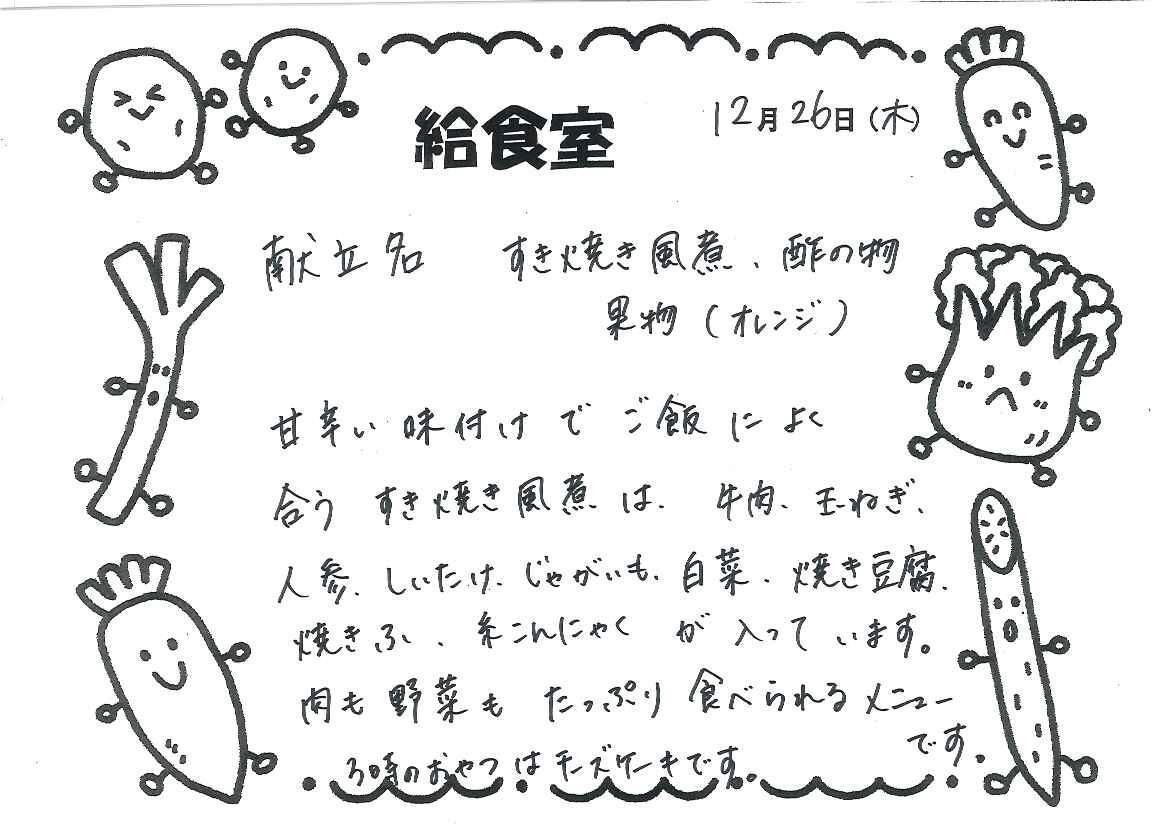 給食室
12月26日(木)
献立名 すき焼き風煮、酢の物
果物(オレンジ)
甘辛い味付けでご飯によく
合うすき焼き風煮は、牛肉、玉ねぎ、
人参、しいたけ、じゃがいも、白菜、焼き豆腐、
焼きふ、糸こんにゃくが入っています。
肉も野菜もたっぷり食べられるメニュー
です。
3時のおやつはチーズケーキです。